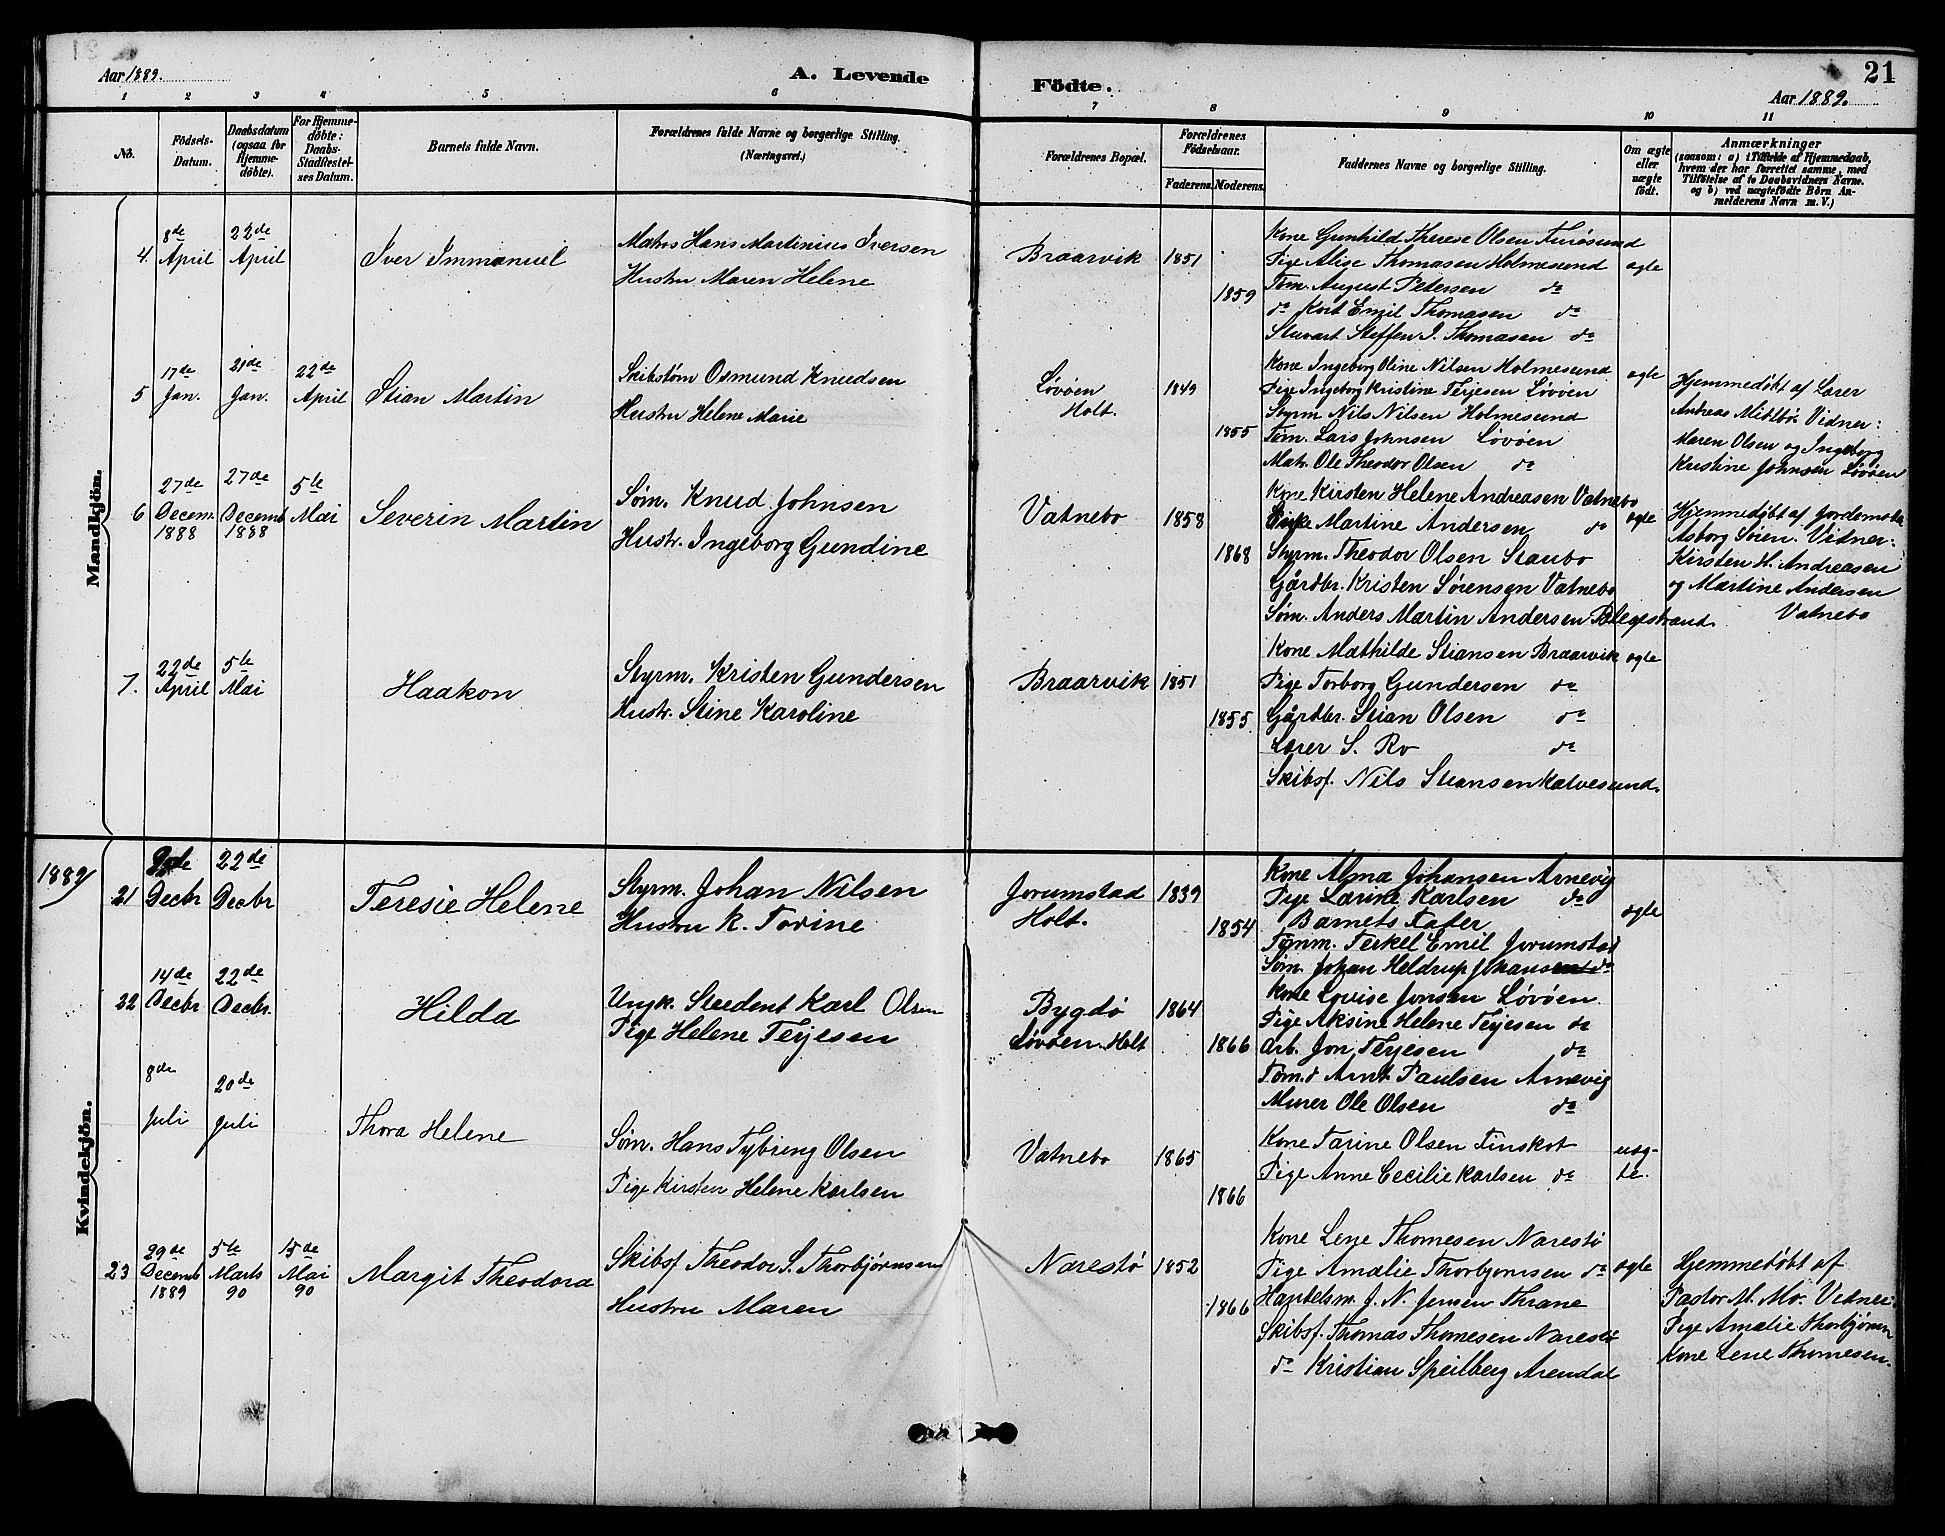 Aar 1889. A. Levende Födte. Aar 1889. 21
1 2 3 4 5 6 7 8 9 10 11
No.
Födsels-Datum.
Daabsdatum (ogsaa for Hjemmedöbte).
For Hjemmedöbte: Daabs-Stadfæstelses Datum.
Barnets fulde Navn.
Forældrenes fulde Navne og borgerlige Stilling. (Næringsvei.)
Forældrenes Bopæl.
Forældrenes Födselsaar.
Faderens. Moderens.
Faddernes Navne og borgerlige Stilling.
Om ægte eller uægte födt.
Anmærkninger
(saasom: a) i Tilfælde af Hjemmedaab,
hvem der har forrettet samme, med
Tilföielse af to Daabsvidners Navne,
og b) ved uægtefödte Börn An-
melderens Navn m. V.)
Mandkjön.
4. 8de April 22de April
Iver Immanuel
Matros Hans Martinius Iversen
Hustru Maren Helene
Braarvik 1851 1859
Kone Gunhild Therese Olsen Furøsund
Pige Alise Thomasen Holmesund
Tøm. August Pedersen do
do Kort Emil Thomasen do
Stuvart Steffen I. Thomasen do
ægte
5 17de Jan. 21de Jan. 22de April
Stian Martin
Skibstøm Osmund Knudsen
Hustru Helene Marie
Løvøen Holt. 1849 1855
Kone Ingeborg Oline Nilsen Holmesund
Pige Ingeborg Kristine Terjesen Løvøen
Styrm Nils Nilsen Holmesund
Tøm. Lars Johnsen Løvøen
Matr. Ole Theodor Olsen do
ægte
Hjemmedøbt af Lærer
Andreas Midtbø. Vidner:
Maren Olsen og Ingeborg
Kristine Johnsen Løvøen
6 27de Decem. 1888 27de Decemb 1888 5te Mai
Severin Martin
Søm. Knud Johnsen
Hustr. Ingeborg Gundine
Vatnebo 1858 1868
Kone Kirsten Helene Andreasen Vatnebo
Pige Martine Andersen do
Styrm. Theodor Olsen Staubo
Gårdbr. Kristen Sørensen Vatnebo
Søm. Anders Martin Andersen
ægte
Hjemmedøbt af Jordemoder
Asborg Søren. Vidner:
Kirsten H. Andreasen
og Martine Andersen
Vatnebo
7. 22de April 5te Mai
Haakon
Styrm. Kristen Gundersen
Hustr. Stine Karoline
Braarvik 1851 1855
Kone Mathilde Stiansen Braarvik
Pige Torborg Gundersen do
Gårdbr. Stian Olsen do
Lærer S. Ro do
Skibsf. Nils Stiansen Kalvesund.
ægte
1889
Kvindekjön.
21 Decbr 22de Decbr
Teresie Helene
Styrm. Johan Nilsen
Hustru K. Torine
Jorumstad Holt. 1839 1854
Kone Alma Johansen Arnevig
Pige Larine Karlsen do
Barnets Fader
Tømm. Terkel Emil Jorumstad
Søm. Johan Heldrup Johansen do
ægte
22 14de Decbr 22de Decbr.
Hilda
Ungk. Student Karl Olsen
Pige Helene Terjesen
Bygdø
Løvøen. Holt 1864 1866
Kone Louise Jonsen Løvøen.
Pige Aksine Helene Terjesen do
Arb. Jon Terjesen do
Tøm.d Arnt Paulsen Arnevig
Murer Ole Olsen do
8de Juli 20de Juli
Thora Helene
Søm. Hans Tybring Olsen
Pige Kirsten Helene Karlsen
Vatnebo 1865 1866
Kone Tarine Olsen Finskot
Pige Anne Cecilie Karlsen do
uæg-
te.
23 29de Decemb 1889 5te Marts 90 15de Mai 90
Margit Theodora
Skibsf Theodor S. Thorbjørnsen
Hustru Maren
Narestø 1852 1866
Kone Lene Thomesen Narestø
Pige Amalie Thorbjornsen do
Handelsm. J. N. Jensen Thrane
Skibsf. Thomas Thomesen Narestø
do Kristian Speilberg Arendal
ægte
Hjemmedøbt af
Pastor M. Mo. Vidner:
Pige Amalie Thorbjørnsn
Kone Lene Thomesen.